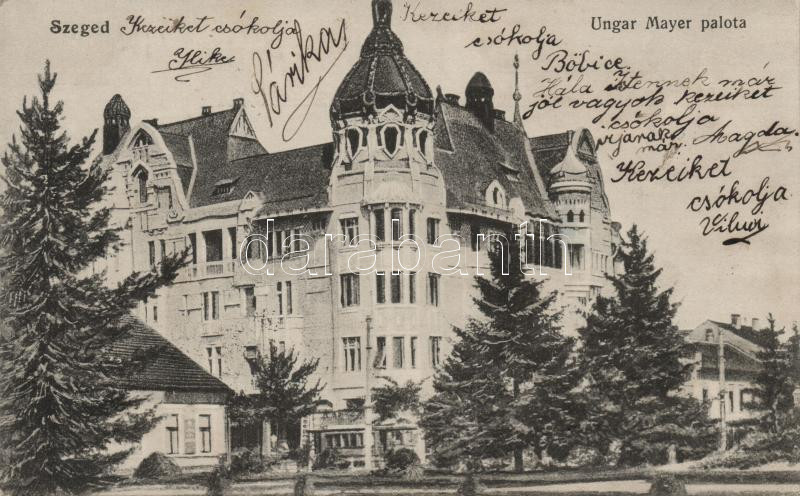 Szeged
Kezeiket csókolja
Ilike
Sárika
Kezeiket
csókolja
Böbice.
Ungar Mayer palota
Hála Istennek már
jól vagyok kezeiket
csókolja
járak
már. Magda.
Kezeiket
csókolja
Vilmos
darabanth.com